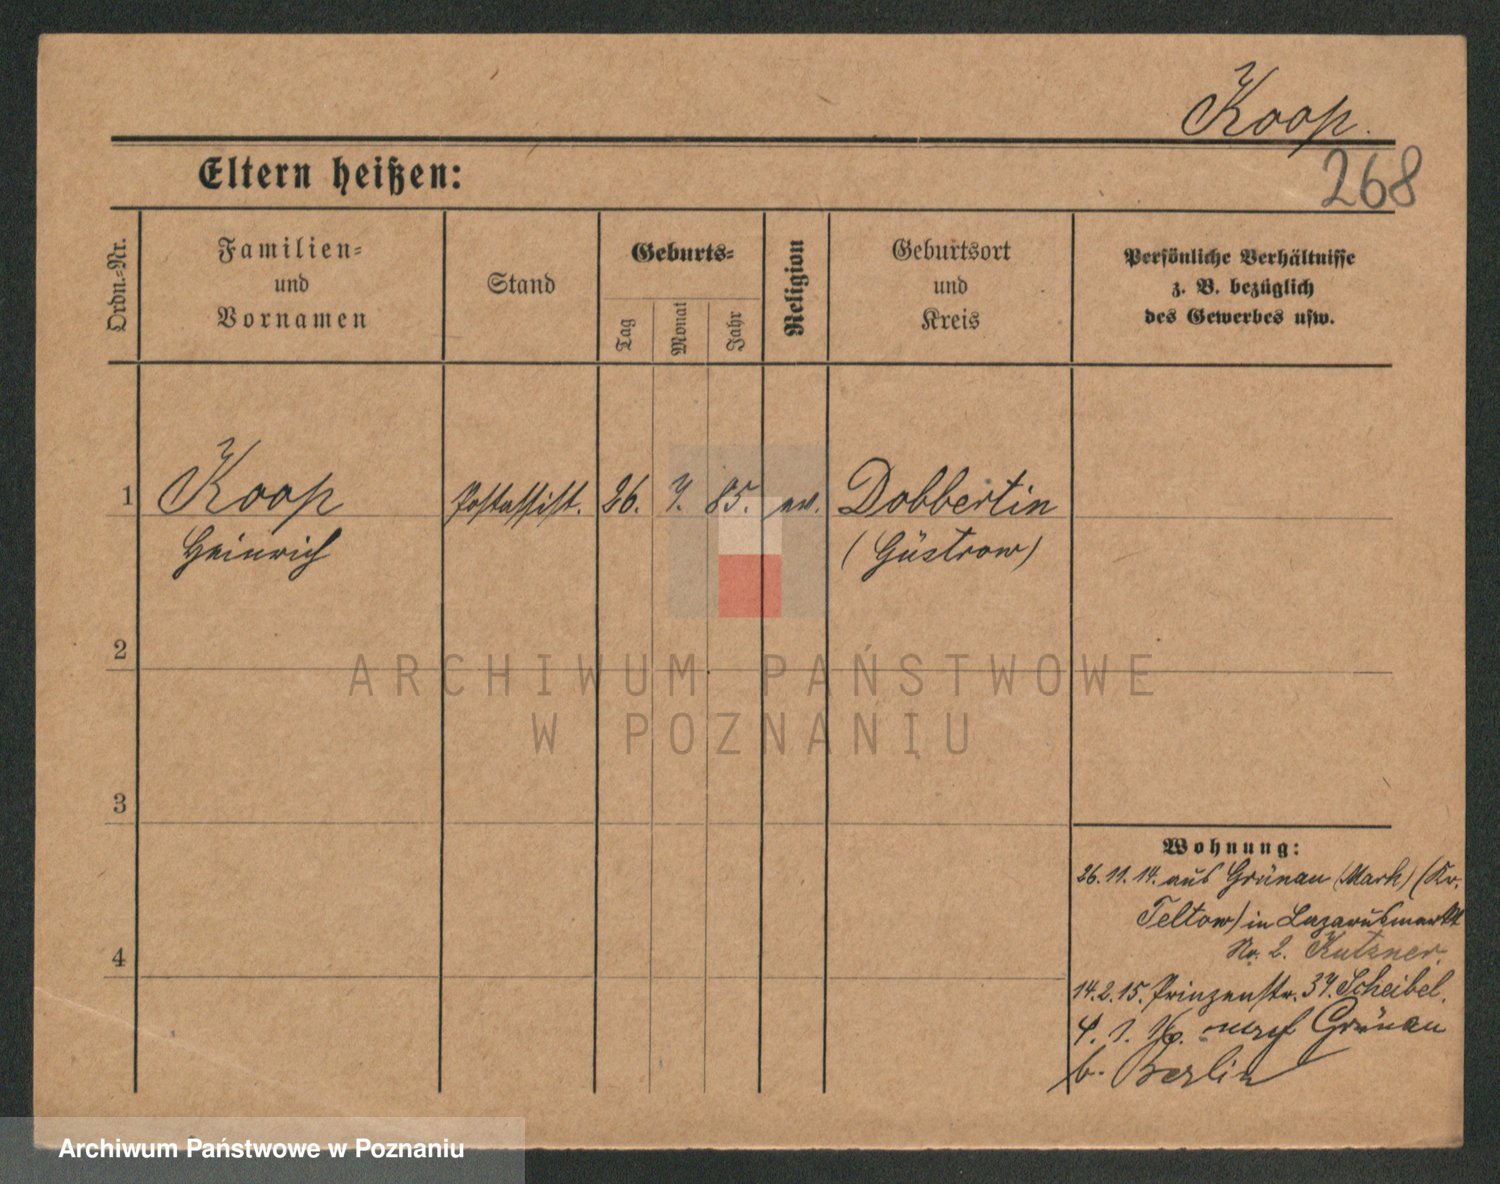 Koop.
268
Eltern heißen:
Ordn.-Nr.
Familien-
und
Vornamen
Stand
Geburts-
Tag
Monat
Jahr
Religion
Geburtsort
und
Kreis
Persönliche Verhältnisse
z. B. bezüglich
des Gewerbes usw.
1 Koop Postassist. 26. 7. 85. ev. Dobbertin
Heinrich (Güstrow)
2
3
4
Wohnung:
26.11.14. aus Grünau (Mark) (Kr.
Teltow) in Lazarusmarkt
No. 2. Kutzner.
14.2.15. Prinzenstr. 37. Scheibel.
4. 1. 16. nach Grünau
b. Berlin
ARCHIWUM PAŃSTWOWE
W POZNANIU
Archiwum Państwowe w Poznaniu